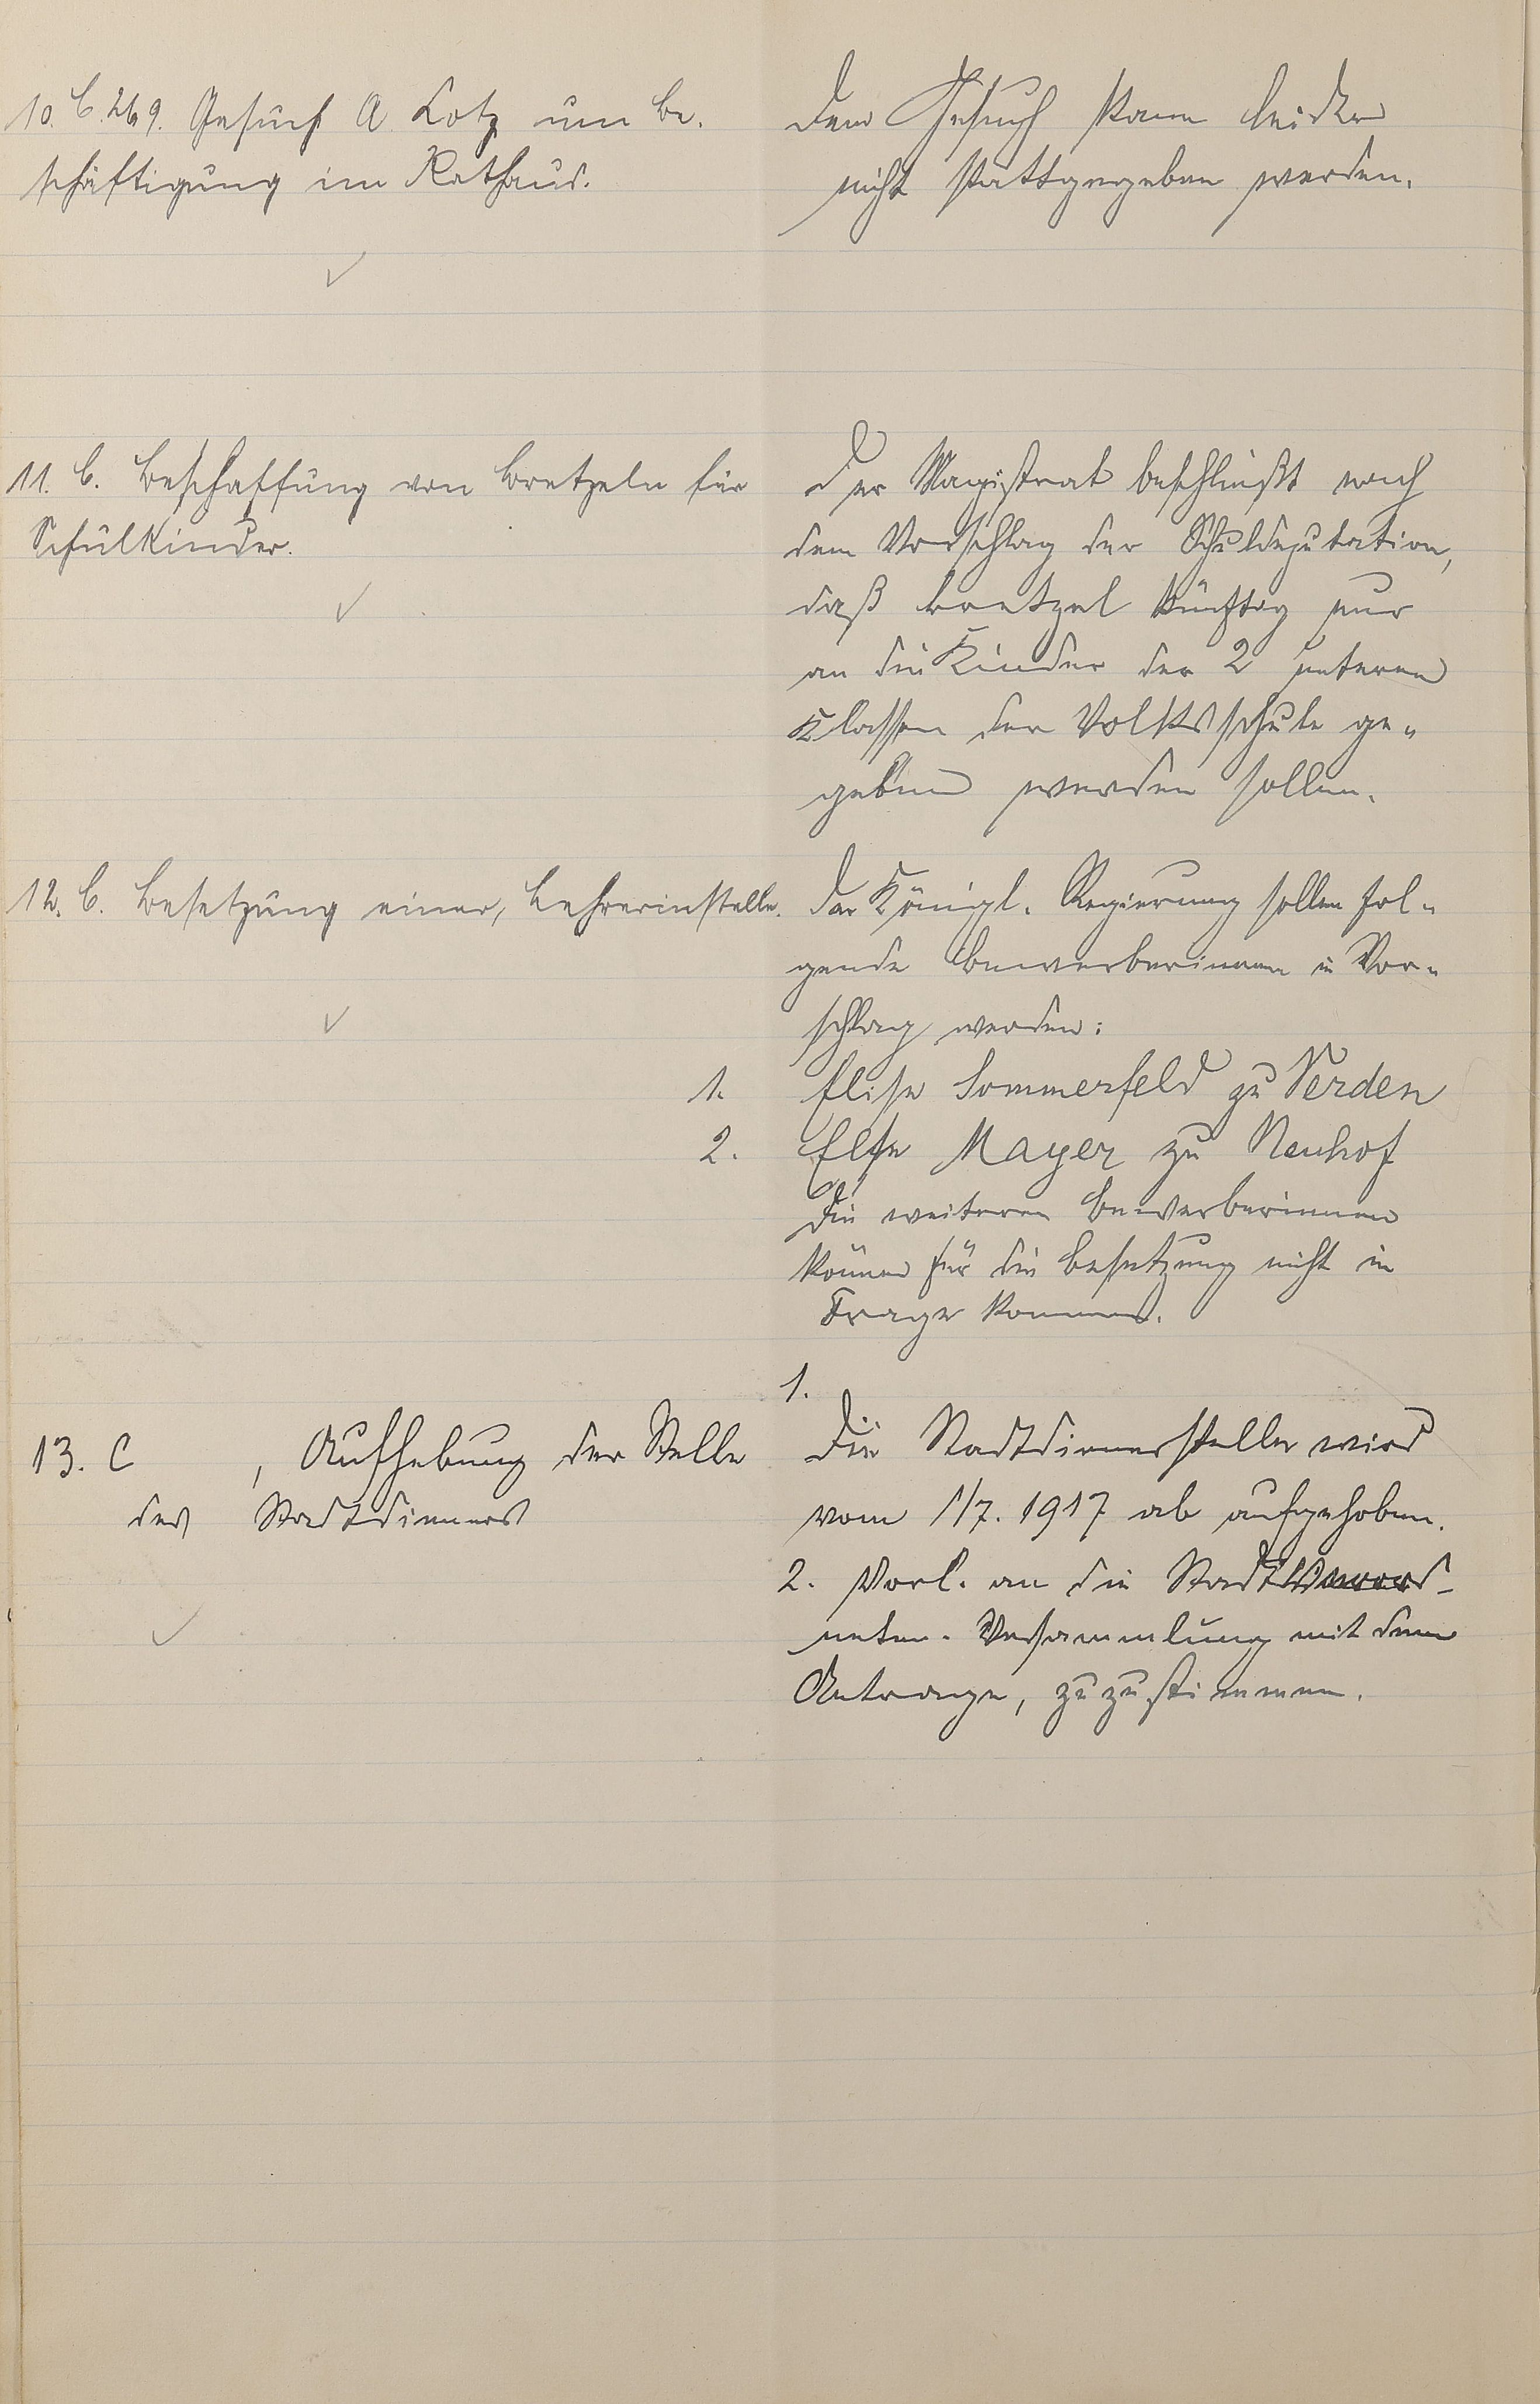 10. C. 269. Gesuch A Lotz um Be-
schäftigung im Rathaus.
Dem Gesuch kann leider
nicht stattgegeben werden.
11. C. Beschaffung von Bretzeln für
Schulkinder.
Der Magistrat beschließt nach
dem Vorschlag der Schuldeputation,
daß Bretzel künftig nur
an die Kinder der 2 unteren
Klassen der Volksschule ge-
geben werden sollen.
12. C. Besetzung einer, Lehrerinstelle.
Der Königl. Regierung sollen fol-
gende Bewerberinnen in Vor-
schlag werden:
1. Elise Sommerfeld zu Verden
2. Else Mayer zu Neuhof
Die weiteren Bewerberinnen
können für die Besetzung nicht in
Frage kommen.
13. C , Aufhebung der Stelle
des Stadtdieners
1.
Die Stadtdienerstelle wird
vom 1/7. 1917 ab aufgehoben.
2. Vorl. an die
neten-Versammlung mit dem
Antrage, zuzustimmen.